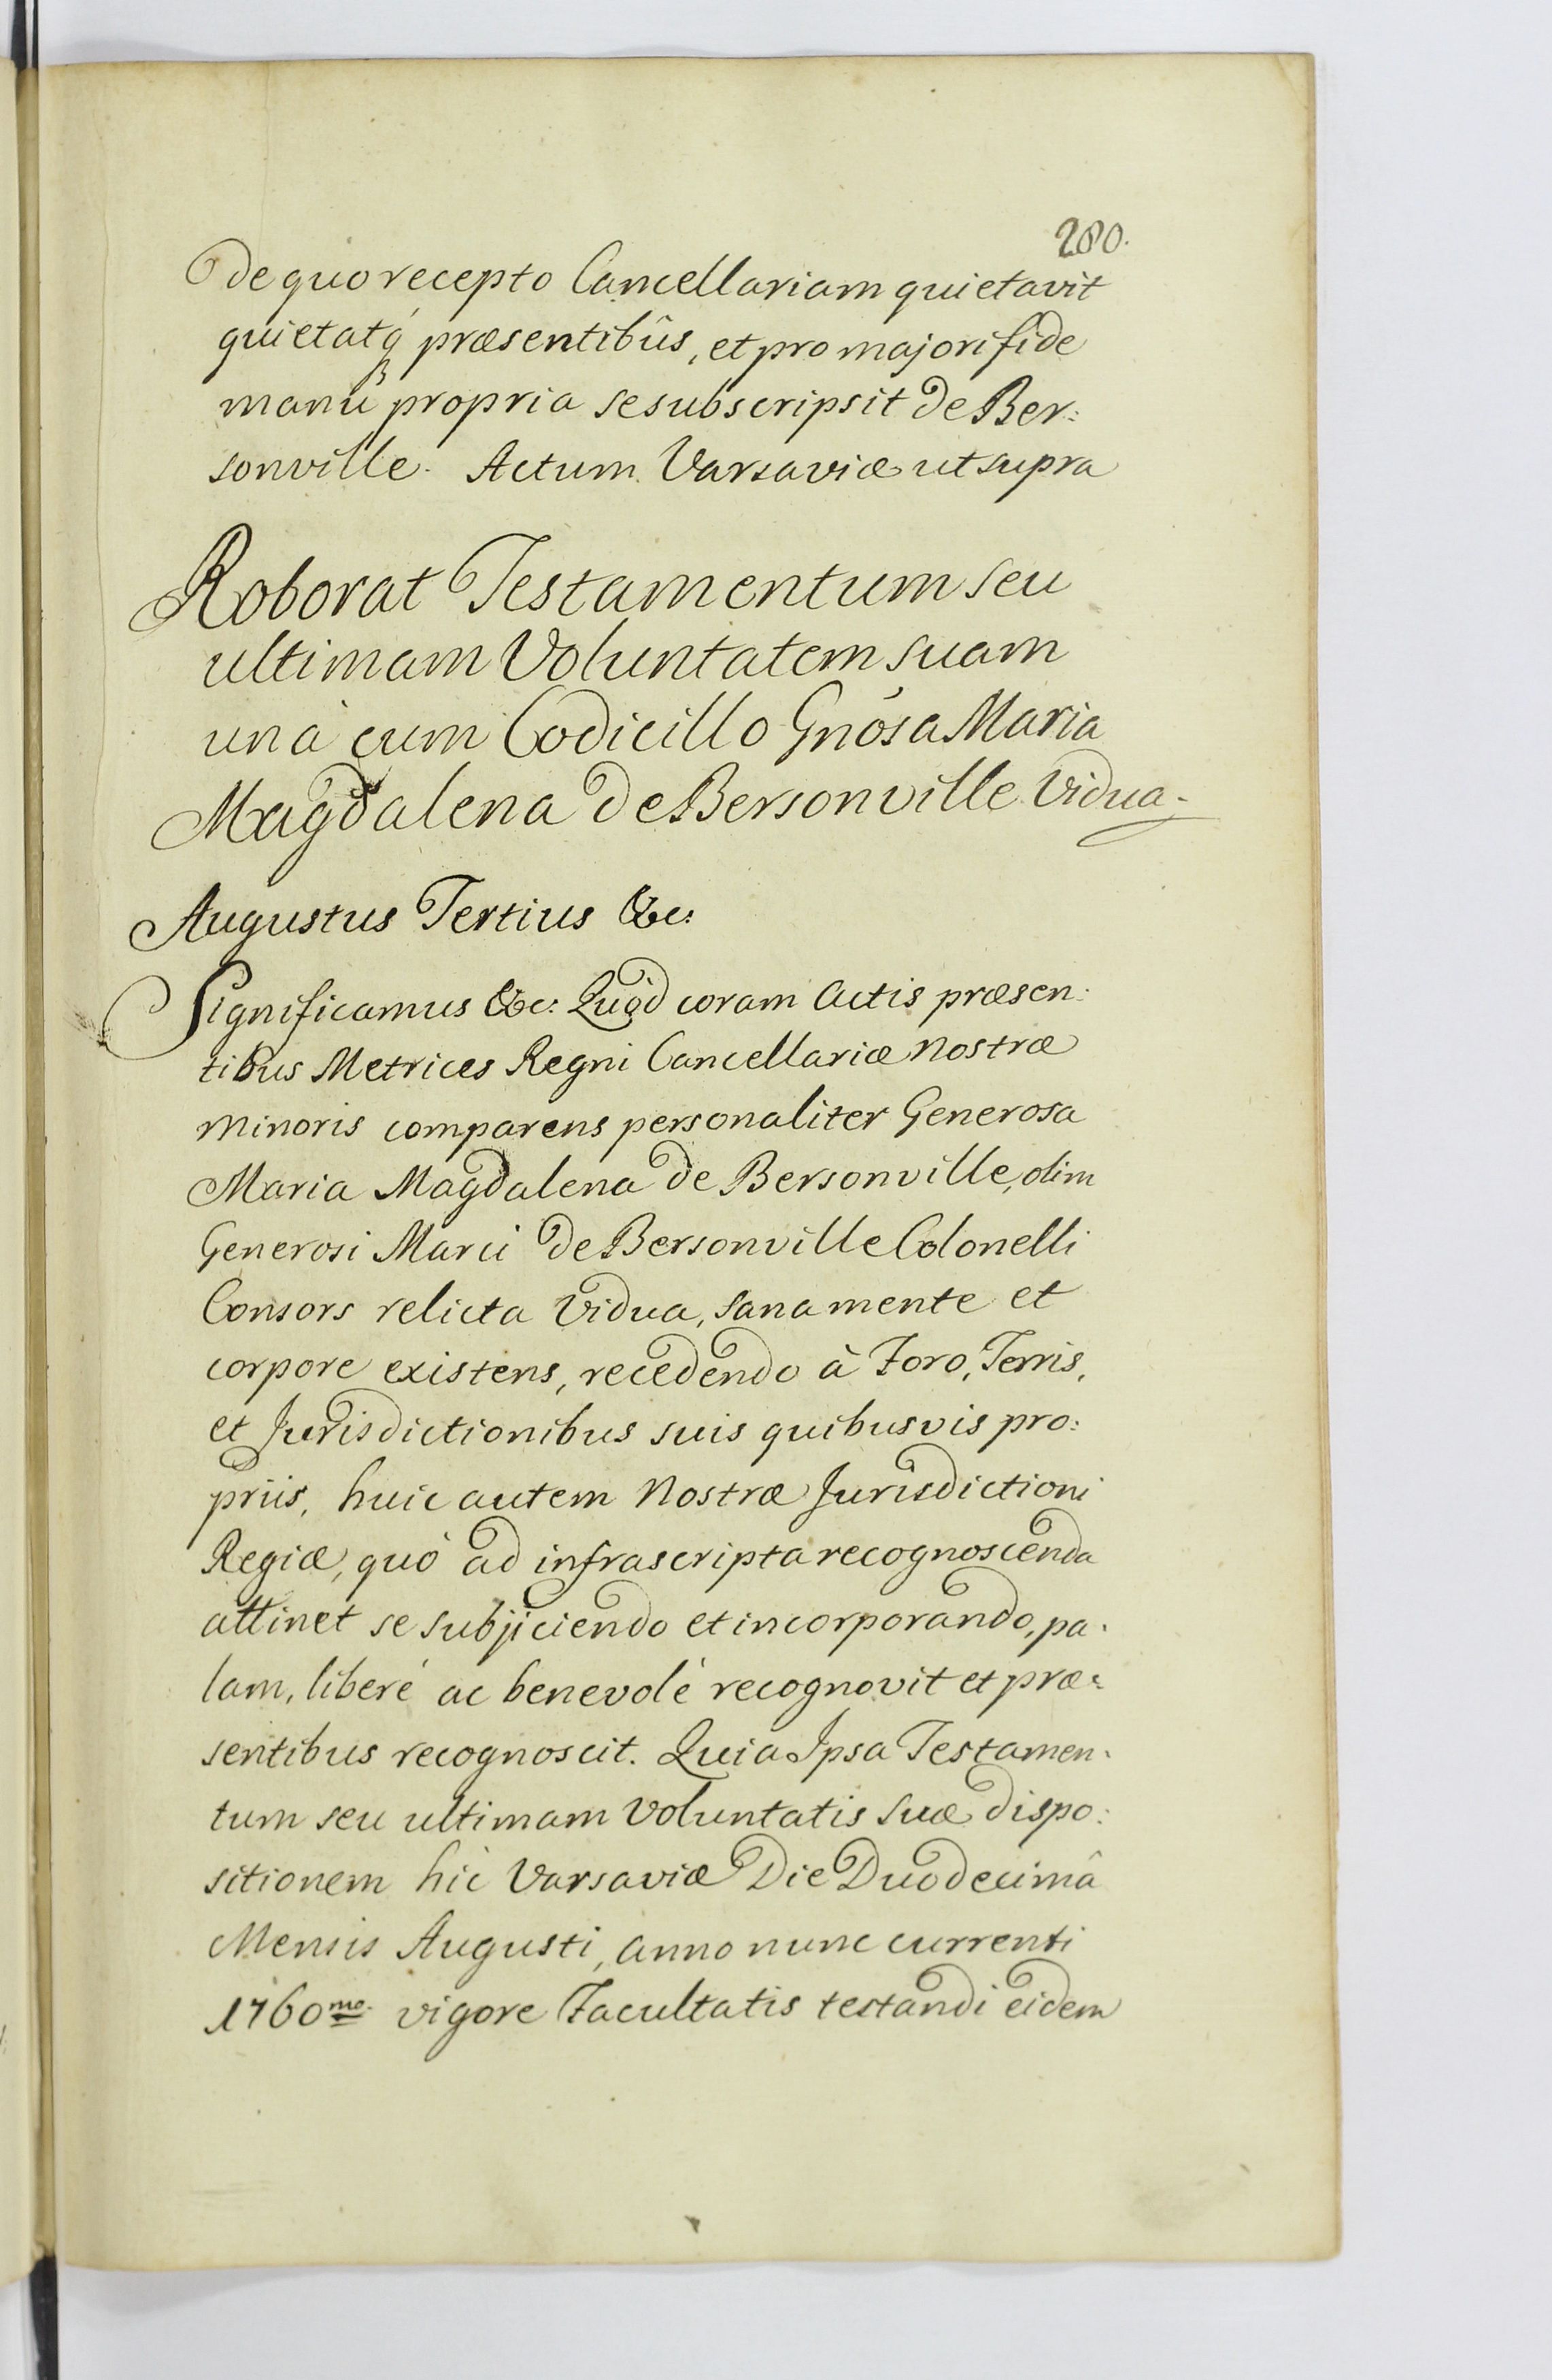 280.
de quo recepto Cancellariam quietavit
quietatq́ præsentibûs, et pro majori fide
manû propria se subscripsit de Ber:
sonville. Actum Varsaviæ ut supra
Roborat Testamentum seu
ultimam Voluntatem suam
unà cum Codicillo Gnósa Maria
Magdalena de Bersonville Vidua.
Augustus Tertius &c:
Significamus &c: Quòd coram Actis præsen:
tibus Metrices Regni Cancellariæ Nostræ
Minoris comparens personaliter Generosa
Maria Magdalena de Bersonville, olim
Generosi Marci de Bersonville Colonelli
Consors relicta Vidua, sana mente et
corpore existens, recedendo à Foro, Terris,
et Jurisdictionibus suis quibusvis pro:
priis, huic autem Nostræ Jurisdictioni
Regiæ, quò ad infrascripta recognoscenda
attinet se subjiciendo et incorporando, pa:
lam, liberè ac benevolè recognovit et præ:
sentibus recognoscit. Quia Ipsa Testamen:
tum seu ultimam Voluntatis suæ dispo:
sitionem hìc Varsaviæ Die Duodecimâ
Mensis Augusti, Anno nunc currenti
1760mo. vigore Facultatis testandi eidem